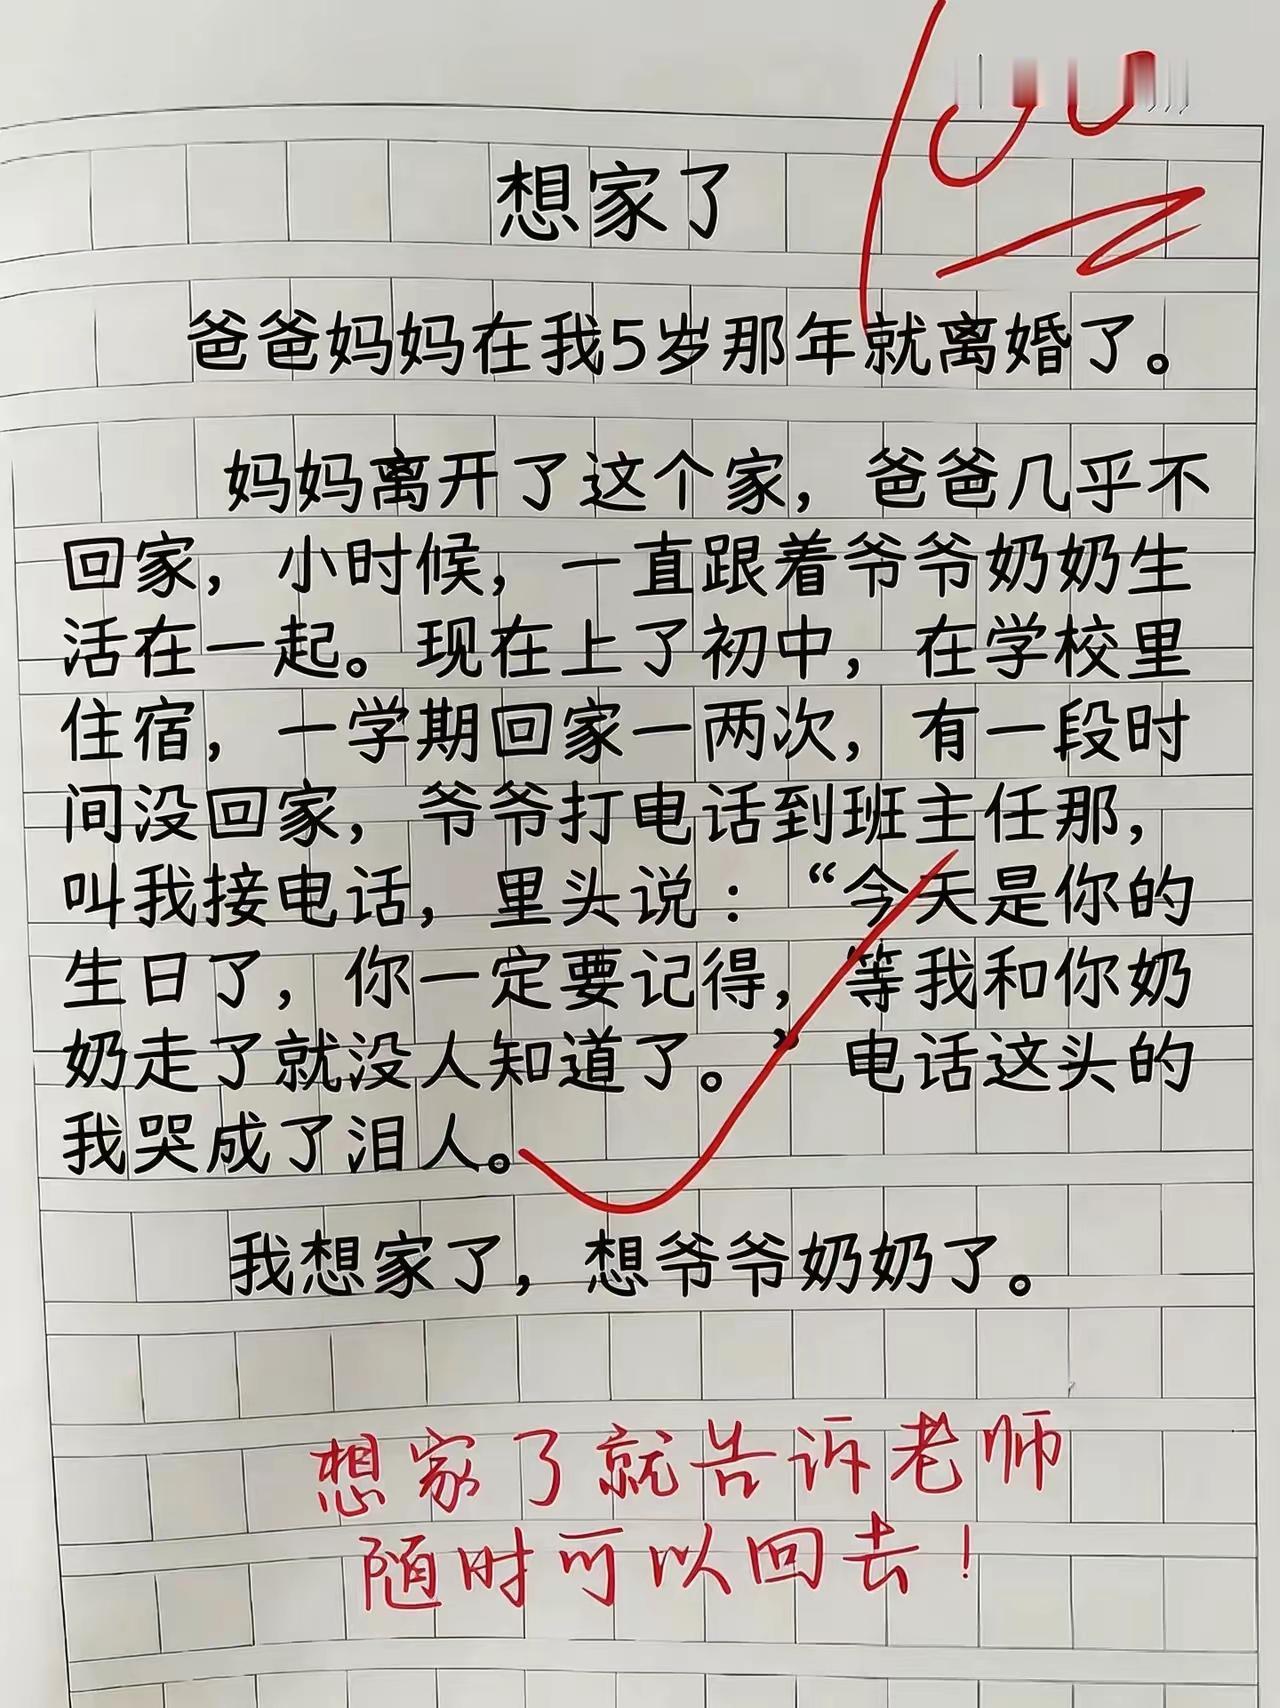 100
想家了
爸爸妈妈在我5岁那年就离婚了。
妈妈离开了这个家，爸爸几乎不
回家，小时候，一直跟着爷爷奶奶生
活在一起。现在上了初中，在学校里
住宿，一学期回家一两次，有一段时
间没回家，爷爷打电话到班主任那，
叫我接电话，里头说：“今天是你的
生日了，你一定要记得，等我和你奶
奶走了就没人知道了。”电话这头的
我哭成了泪人。
我想家了，想爷爷奶奶了。
想家了就告诉老师
随时可以回去！